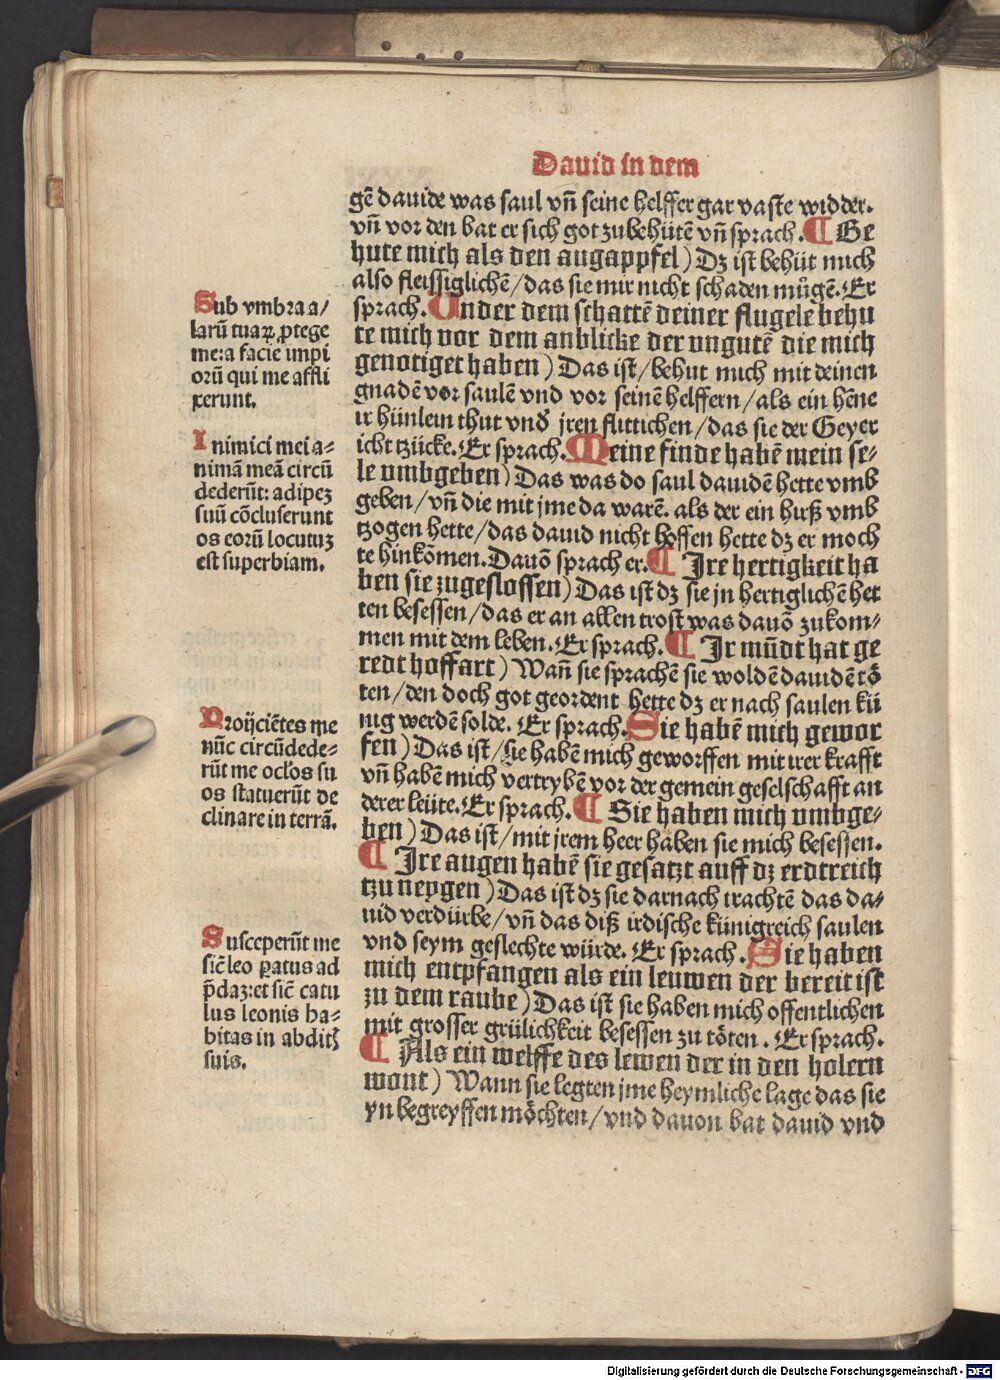 Dauid in dem
gē dauide was saul vn̄ seine helffer gar vaste widder.
vn̄ vor den bat er sich got zubehütē vn̄ sprach. ¶ Be
hute mich als den augappfel) Dz ist behüt mich
also fleissiglichē/das sie mir nicht schaden mügē. Er
sprach. Under dem schattē deiner flugele behu
te mich vor dem anblicke der vngutē die mich
genotiget haben) Das ist/behut mich mit deinen
gnadē vor saulē vnd vor seinē helffern/als ein hēne
ir hünlein thut vnd̄ jren fluttichen/das sie der Geyer
icht tzücke. Er sprach. Meine finde habē mein se⸗
le vmbgeben) Das was do saul dauidē hette vmb
geben/vn̄ die mit jme da warē. als der ein huß vmb
tzogen hette/das dauid nicht hoffen hette dz er moch
te hinkōmen. Dauō sprach er. ¶ Jre hertigkeit ha
ben sie zugeslossen) Das ist dz sie jn hertiglichē het
ten besessen/das er an allen trost was dauō zukom⸗
men mit dem leben. Er sprach. ¶ Jr mūdt hat ge
redt hoffart) Wan̄ sie sprachē sie woldē dauidē tö
ten/den doch got geordent hette dz er nach saulen kü
nig werdē solde. Er sprach. Sie habē mich gewor
fen) Das ist/sie habē mich geworffen mit irer krafft
vn̄ habē mich vertrybē vor der gemein geselschafft an
derer leüte. Er sprach. ¶ Sie haben mich vmbge⸗
ben) Das ist/mit jrem heer haben sie mich besessen.
¶ Jre augen habē sie gesatzt auff dz erdtreich
tzu neygen) Das ist dz sie darnach trachtē das da⸗
uid verdürbe/vn̄ das diß irdische künigreich saulen
vnd seym geslechte würde. Er sprach. Sie haben
mich entpfangen als ein leuwen der bereit ist
zu dem raube) Das ist sie haben mich offentlichen
mit grosser grülichkeit besessen zu töten. Er sprach.
¶ Als ein welffe des lewen der in den holern
wont) Wann sie legten jme heymliche lage das sie
yn begreyffen möchten/vnd dauon bat dauid vnd
Sub vmbra a/
larū tuaꝝ ꝓtege
me:a facie impi
orū qui me affli
xerunt.
Inimici mei a⸗
nimā meā circū
dederūt: adipeꝫ
suū cōcluserunt
os eorū locutuꝫ
est superbiam.
Proijciētes me
nūc circūdede⸗
rūt me ocl'os su
os statuerūt de
clinare in terrā.
Susceperūt me
sic̄ leo ꝑatus ad
p̄daꝫ:et sic̄ catu
lus leonis ha⸗
bitas in abditꝭ
suis.
Digitalisierung gefördert durch die Deutsche Forschungsgemeinschaft - DFG